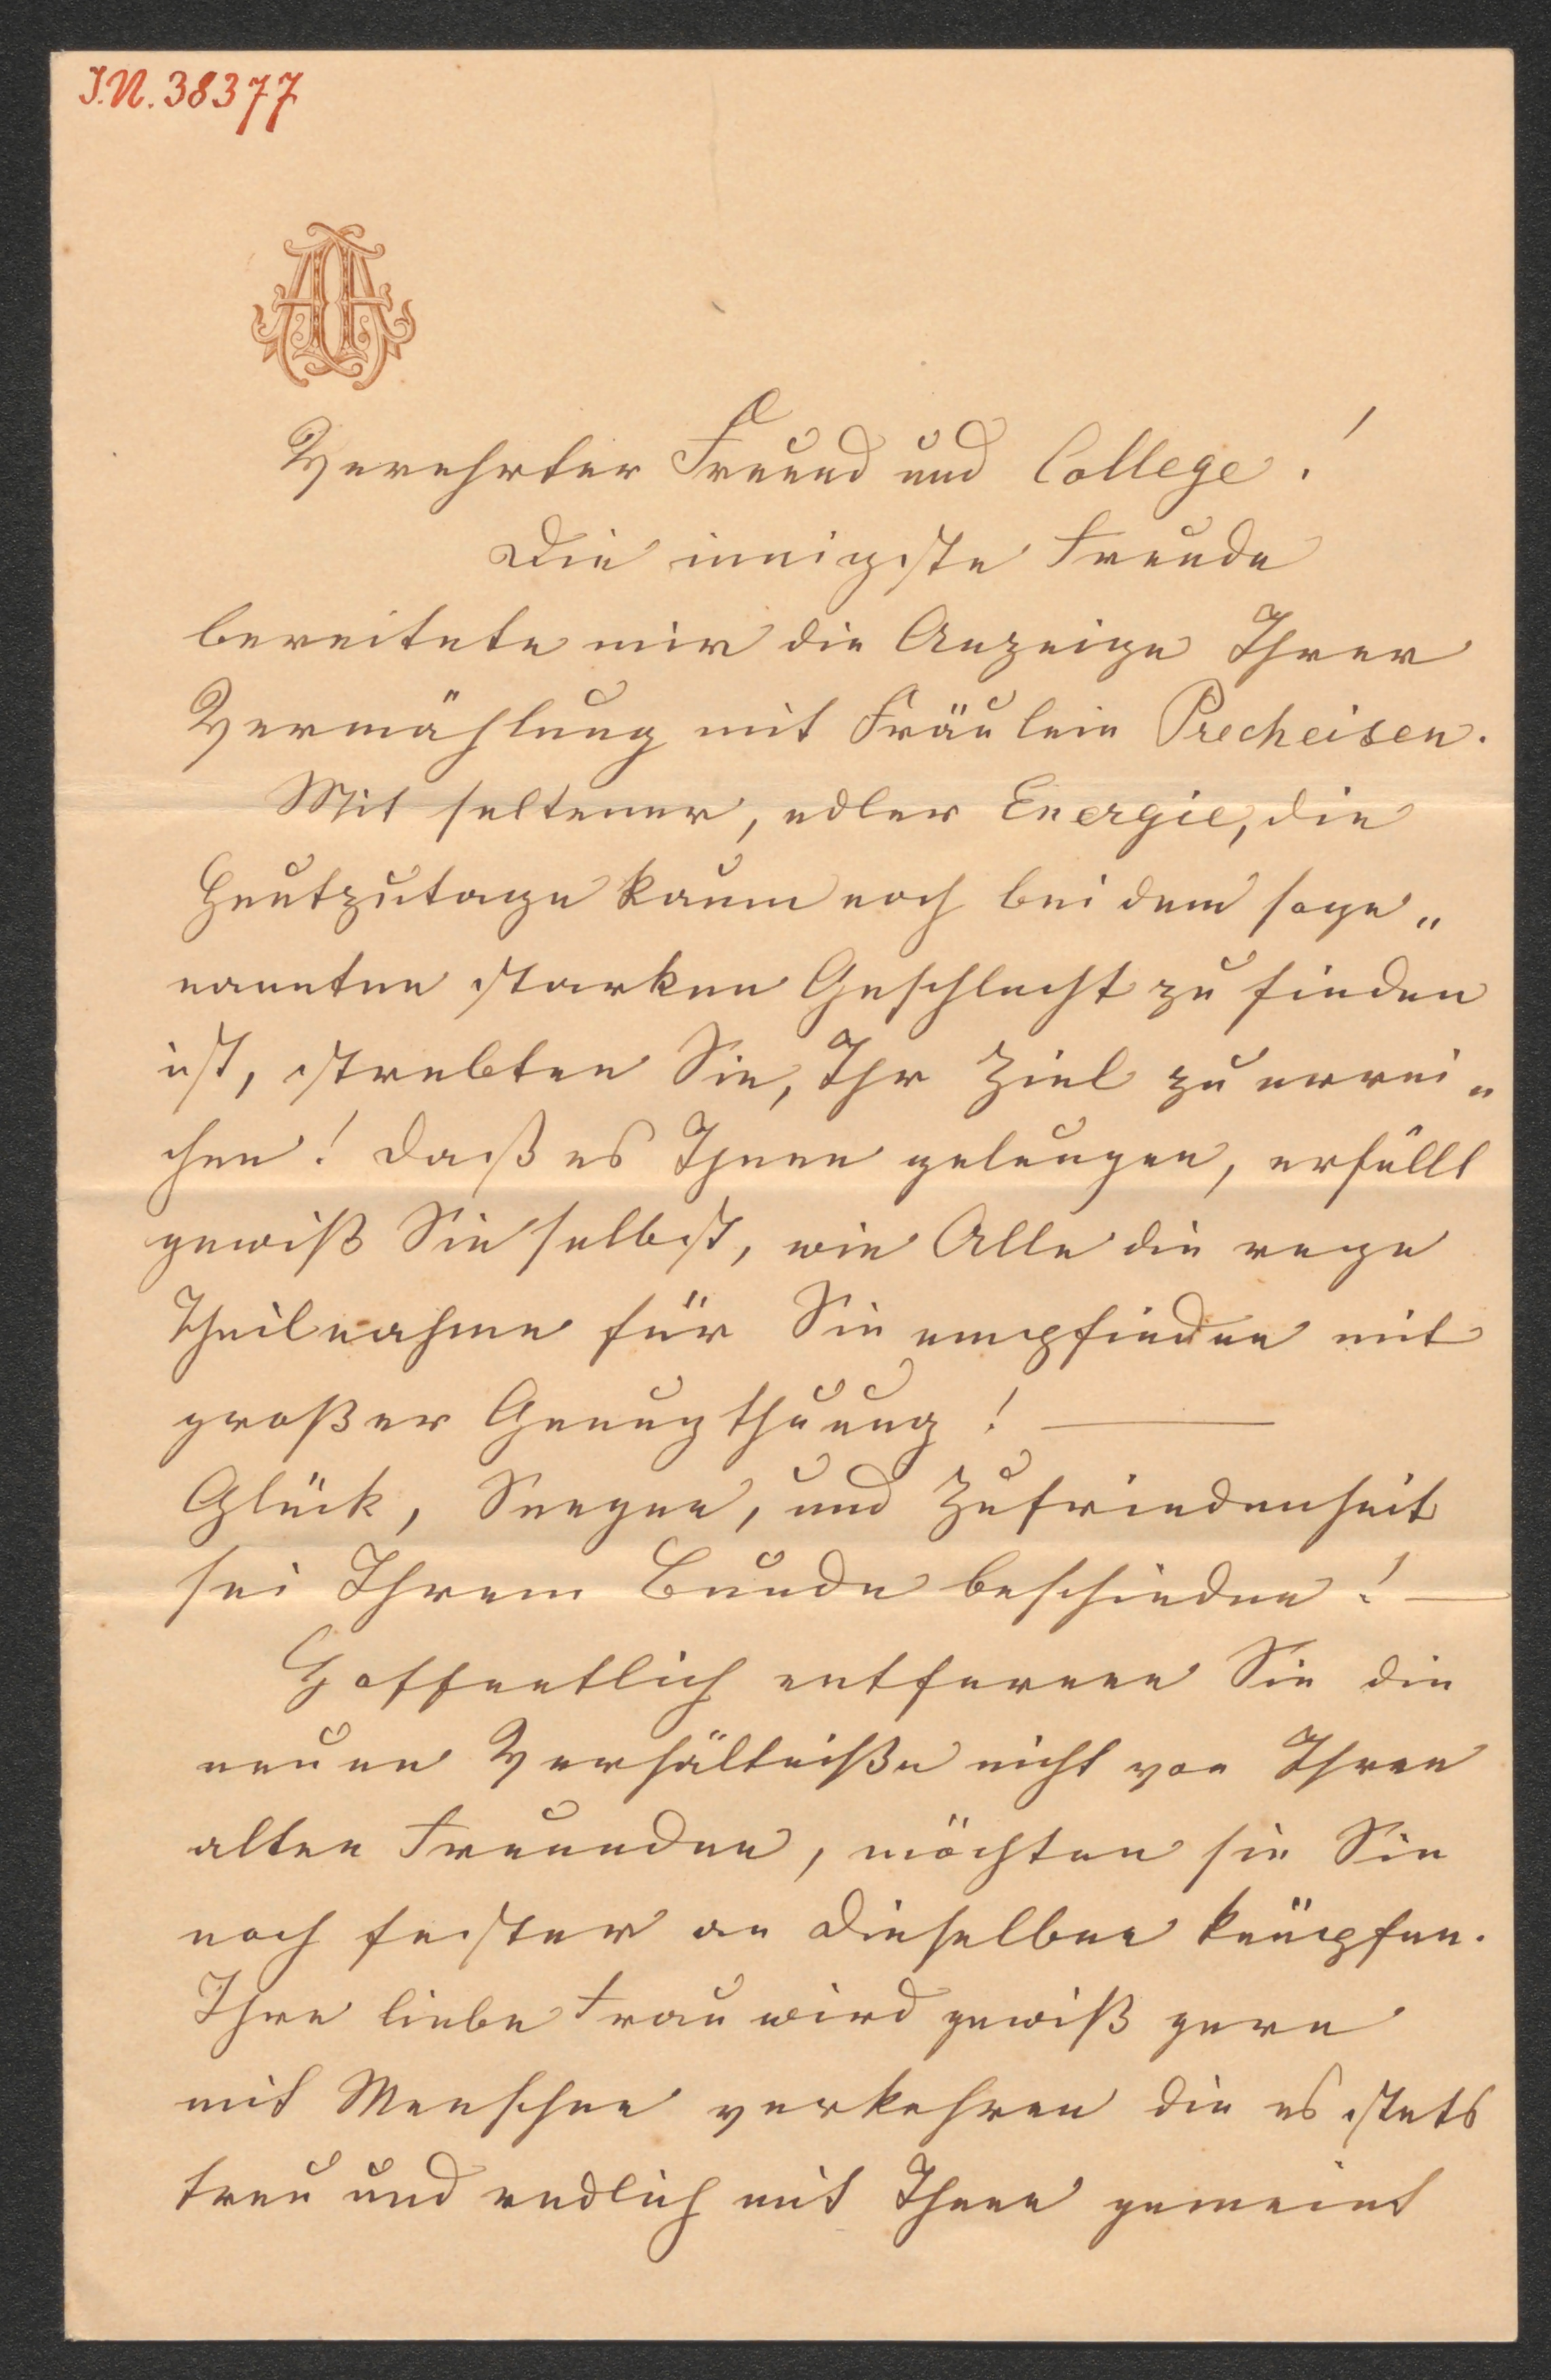 I.N. 38377
Verehrter Freund und College!
Die innigste Freude
bereitete mir die Anzeige Ihrer
Vermählung mit Fräulein Precheisen.
Mit seltener, edler Energie, die
Heutzutage kaum noch bei dem soge„
nannten starken Geschlecht zu finden
ist, strebten Sie, Ihr Ziel zu errei„
chen! Daß es Ihnen gelungen, erfüllt
gewiß Sie selbst, wie Alle die rege
Theilnahme für Sie empfinden mit
großer Genugthuung! —
Glück, Seegen, und Zufriedenheit
sei Ihrem Bunde beschieden! —
Hoffentlich entfernen Sie die
neuen Verhältniße nicht von Ihren
alten Freunden, möchten sie Sie
noch fester an dieselben knüpfen.
Ihre liebe Frau wird gewiß gern
mit Menschen verkehren die es stets
treu und redlich mit Ihnen gemeint